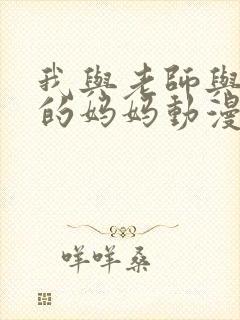 我與老師與
的妈妈動漫
咩咩桑